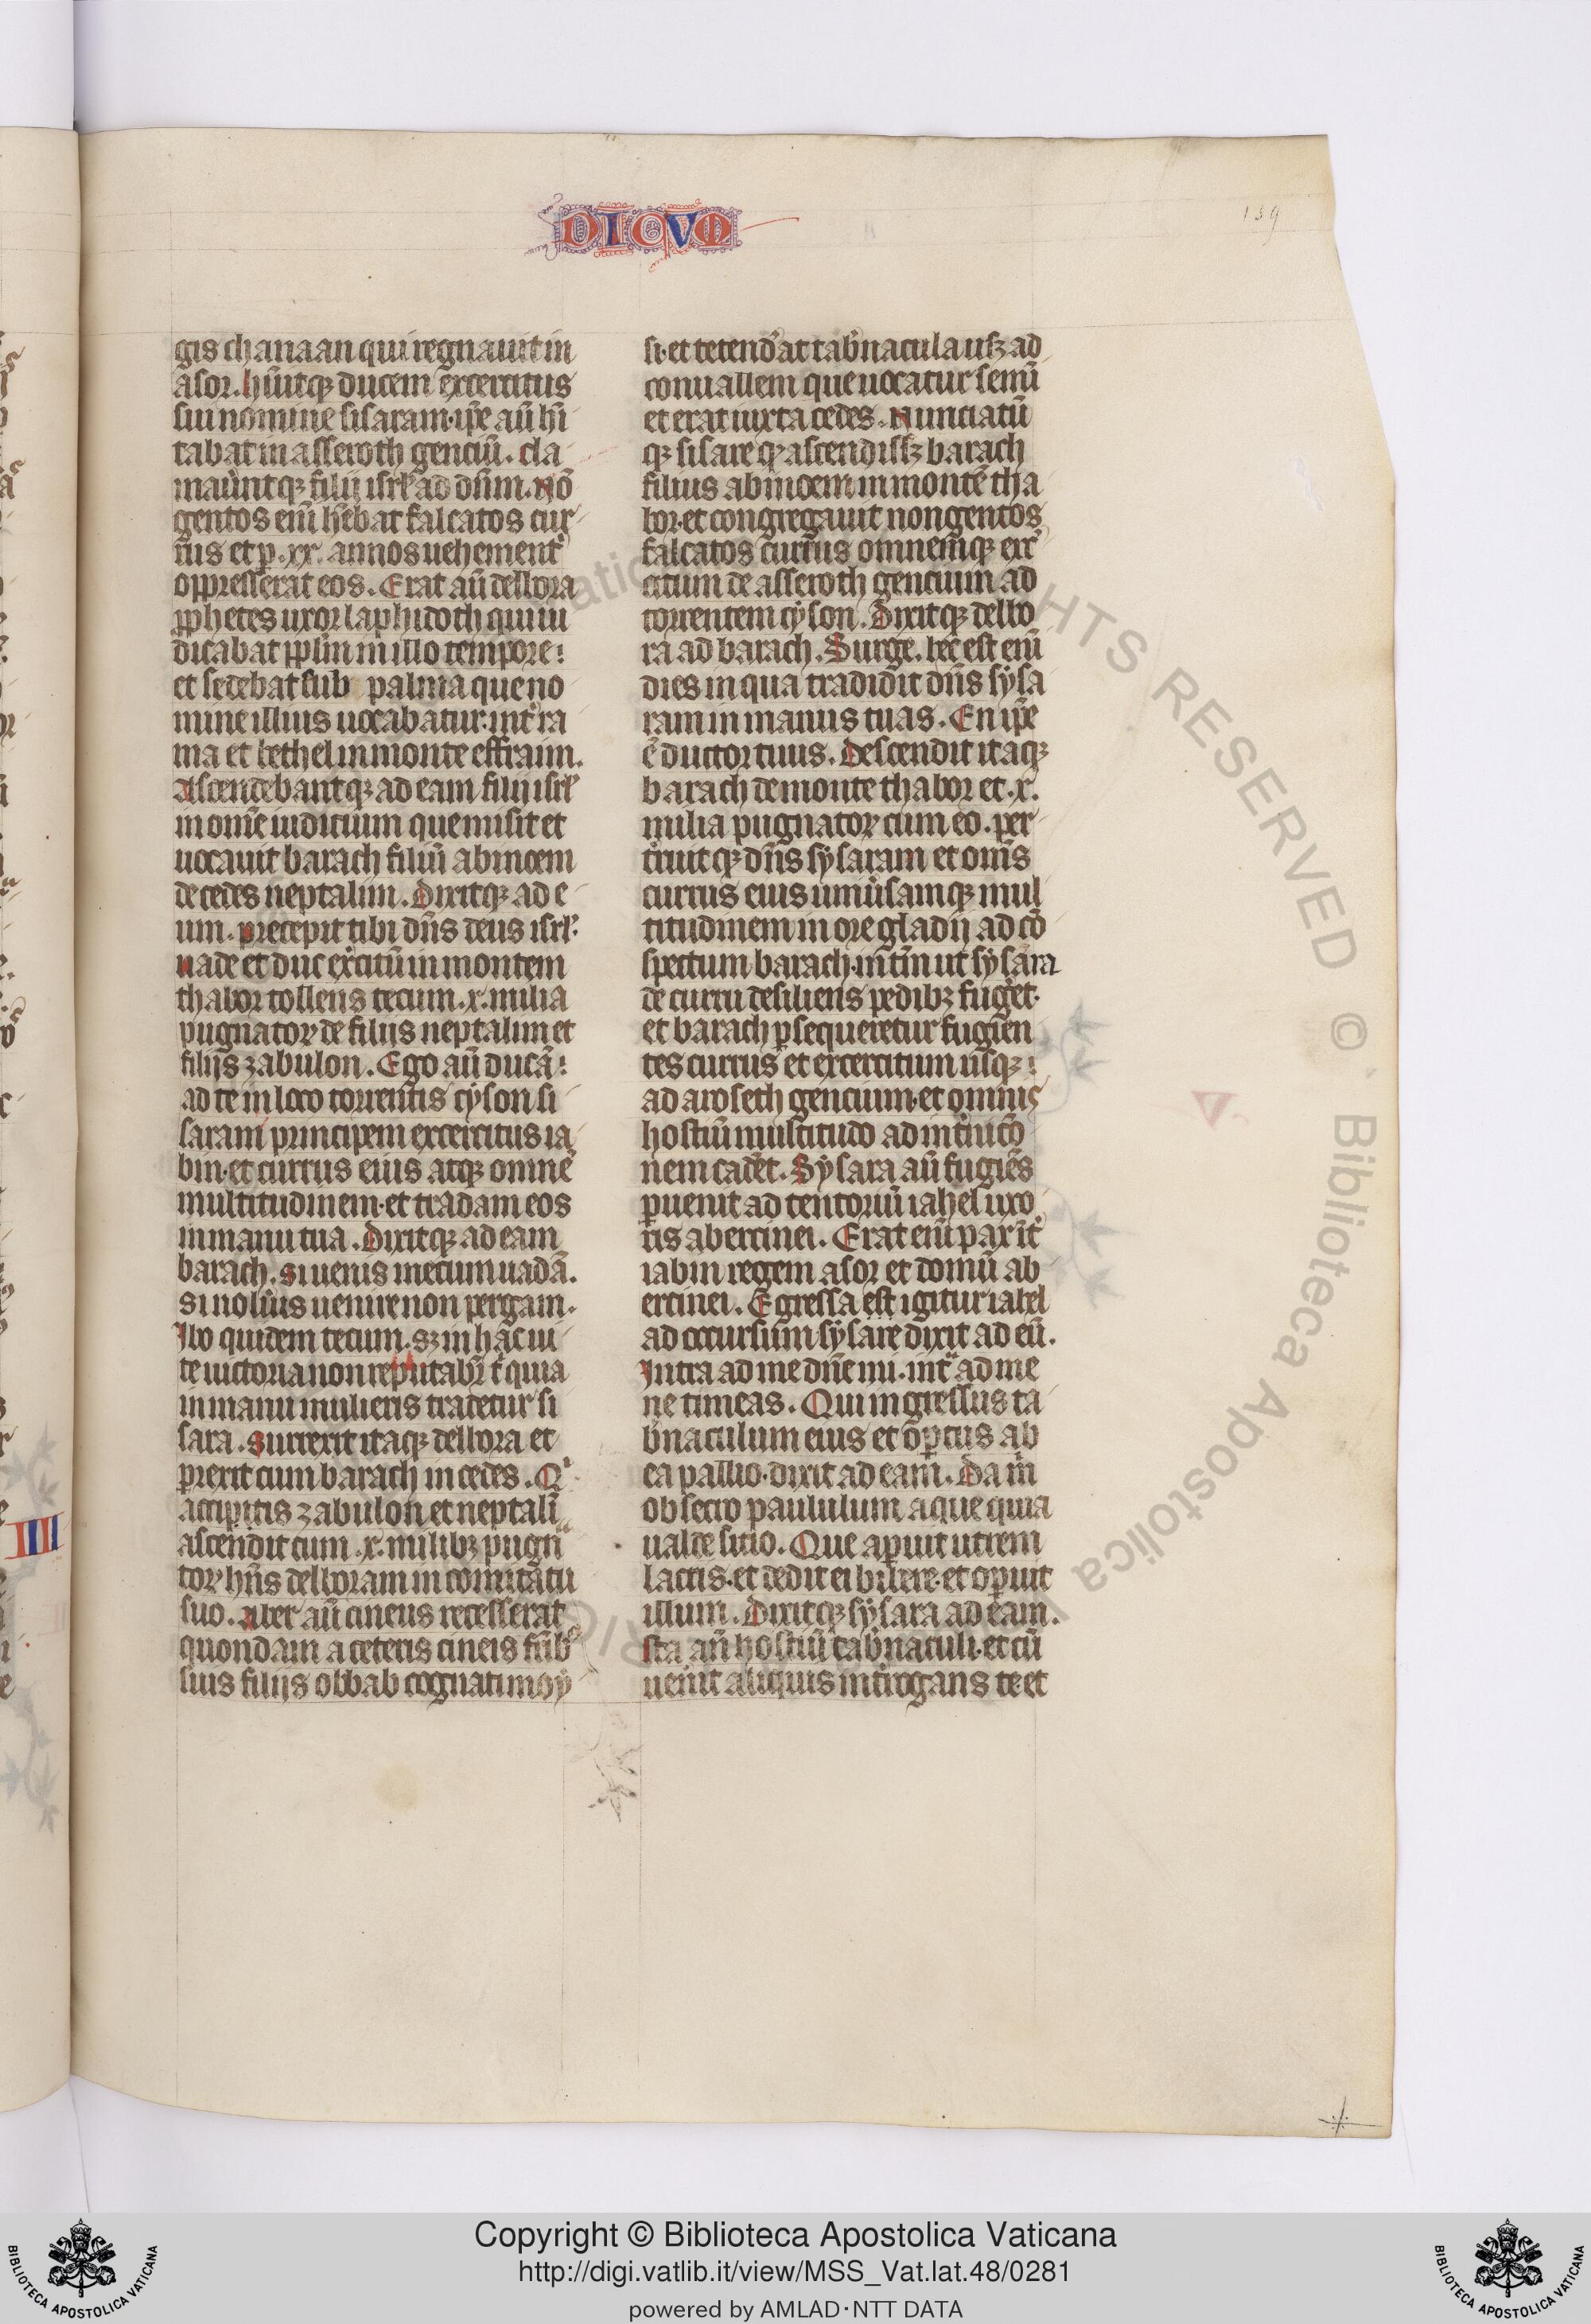 DICVM
139
gis chanaan qui regnauit in
asor. hūitqꝫ ducem excercitus
sui nomine sisaram. ip̄e aū hī
tabat in asseroth genciū. cla
mauͥntqꝫ filij isrl̓ ad dn̄m. Nō
gentos enī hēbat falcatos cur
rus et ꝑ .xx. annos uehement᷑
oppresserat eos. Erat aū delbora
ꝓphetes uxor laphidoth qui iu
dicabat ppl̄m in illo tempore:
et sedebat sub palma que no
mine illius uocabatur. int᷑ ra
ma et bethel in monte effraim.
Ascendebantqꝫ ad eam filij isrl̓
in om̄e iudicium que misit et
uocauit barach filiū abinoem
de cedes neptalim. Dixitqꝫ ad e
um. precepit tibi dn̄s deus isrl̓.
uade et duc ex̓citū in montem
thabor tollens tecum .x. milia
pugnatoꝝ de filijs neptalim et
filijs zabulon. Ego aū ducā:
ad te in loco torrentis cyson si
saram principem excercitus ia
bin. et currus eius atqꝫ omnē
multitudinem. et tradam eos
in manu tua. Dixitqꝫ ad eam
barach. si uenis mecum uadā.
si nolūis uenire non pergam.
Ibo quidem tecum. sꝫ in hac ui
te uictoria non reputabr̄ t̓ quia
in manu mulieris tradetur si
sara. surrexit itaqꝫ delbora et
ꝑrexit cum barach in cedes. Qͥ
accipitis zabulon et neptalī
ascendit cum .x. milibꝫ pugnᷓ
toꝝ hn̄s delboram in comitatu
suo. aber aū cineus recesserat
quondam a ceteris cineis frībꝰ
suis filijs obbab cognati moy
si. et tetend̓at tab̓nacula usqꝫ ad
conuallem que uocatur semī
et erat iuxta cedes. Nuntiatū
qꝫ sisare qꝙ ascendissꝫ barach
filius abinoem in montē tha
bor. et congregauit nongentos
falcatos currus omnemqꝫ exc̓
citum de asseroth gencium ad
torrentem cyson. Dixitqꝫ delbo
ra ad barach. Surge. hec est enī
dies in qua tradidit dn̄s sysa
ram in manus tuas. En ip̄e
ē ductor tuus. Descendit itaqꝫ
barach de monte thabor et .x.
milia pugnatoꝝ cum eo. per
t̓ruitqꝫ dn̄s sysaram et om̄s
currus eius uniūsamqꝫ mul
titudinem in ore gladij ad cō
spectum barach. in t̄m ut sysara
de curru desiliens pedibꝫ fuget.
et barach ꝑsequeretur fugien
tes currus et excercitum usqꝫ:
ad aroseth gencium. et omnis
hostiū multitudo ad int̓nicō
nem cadet. Sysara aū fugiēs
ꝑuenit ad tentoriū iahel uxo
ris abercinei. Erat enī pax int̓
iabin regem asor et domū ab
ercinei. Egressa est igitur iahel
ad occursum sysare dixit ad eū.
Intra ad me dn̄e mi. intᷓ ad me
ne timeas. Qui ingressus ta
b̓naculum eius et oꝑtus ab
ea pallio. dixit ad eam. Da m̄
obsecro paululum aque quia
ualde sitio. Que aꝑuit utrem
lactis. et dedit ei bibere. et oꝑuit
illum. Dixitqꝫ sysara ad eam.
sta an̄ hostiū tab̓naculi. et cū
uen̄it aliquis int̓rogans te et
IIII
Copyright © Biblioteca Apostolica Vaticana
http://digi.vatlib.it/view/MSS_Vat.lat.48/0281
powered by AMLAD·NTT DATA
BIBLIOTECA APOSTOLICA VATICANA
BIBLIOTECA APOSTOLICA VATICANA